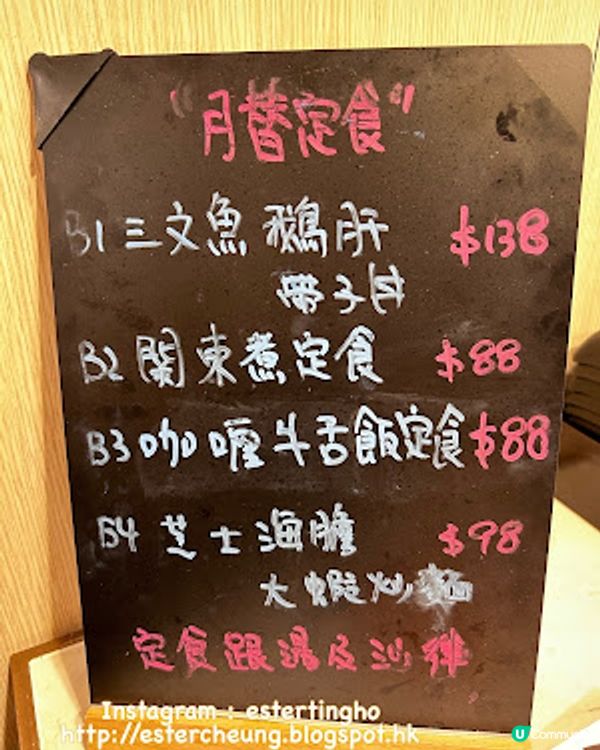 "月替定食"
B1 三文魚 鵝肝 $138
帶子丼
B2 関東煮定食 $88
B3 咖喱牛舌飯定食 $88
B4 芝士海膽 $98
大蝦炒麵
定食跟湯及沙律
Instagram : estertingho
http://estercheung.blogspot.hk
U Community